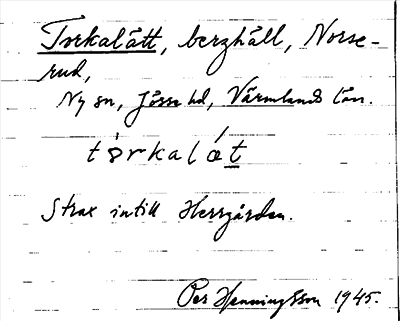 Torkalått, berghäll, Norse-
rud,
Ny sn, Jösse hd, Värmlands län.
tòrkalát
Strax intill Herrgården.
Per Henningsson 1945.